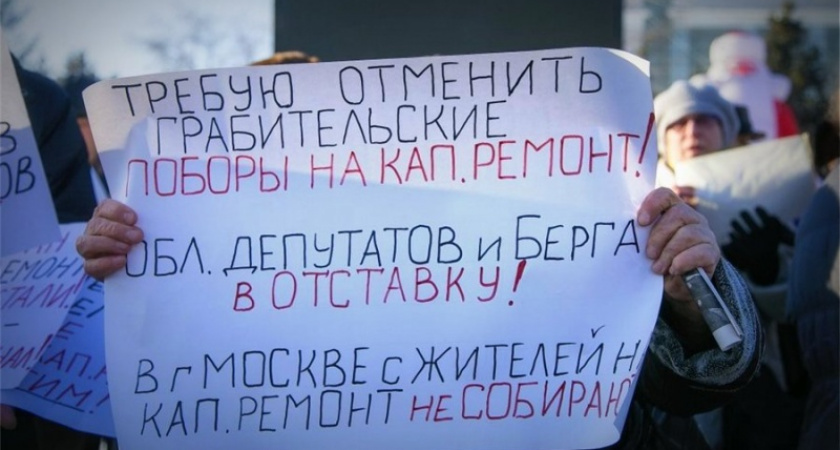 ТРЕБУЮ ОТМЕНИТЬ
ГРАБИТЕЛЬСКИЕ
ПОБОРЫ НА КАП.РЕМОНТ!
ОБЛ. ДЕПУТАТОВ и БЕРГА
В ОТСТАВКУ!
В г МОСКВЕ с ЖИТЕЛЕЙ Н
КАП.РЕМОНТ НЕ СОБИРАЮ